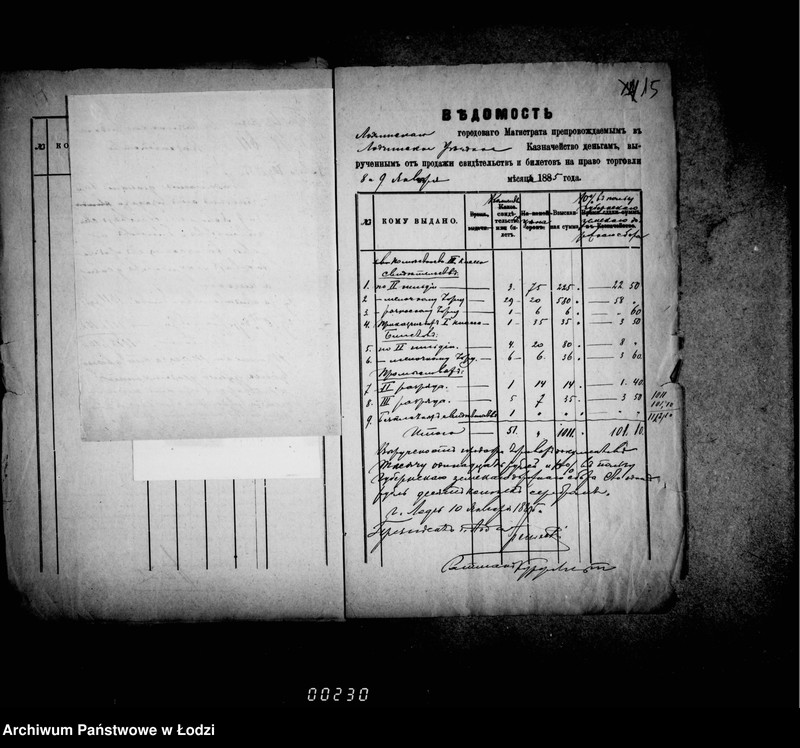 15
ВѢДОМОСТЬ
Лодзинскаго городоваго Магистрата препровождаемымъ въ
Лодзинское Уѣздное Казначейство деньгамъ, вы-
рученнымъ отъ продажи свидѣтельствъ и билетовъ на право торговли
8 и 9 Января мѣсяца 1885 года.
№ КО
№ КОМУ ВЫДАНО. Время выдачи. Какое свидѣтельство или билетъ. Взысканная сумма. 10% въ пользу
III класса
Свидѣтельствъ
1. по II гильдіи 3. 75 225 22 50
2 мелочному торгу 29 20 580 58 "
3 торгу 1 6 6 " 60
4. Прикащичьихъ I класса 1 35 35 3 50
Билетовъ:
5. по II гильдіи. 4. 20 80 8 "
6. мелочному торгу. 6 6 36 3 60
Промысловыхъ:
7 II разряда. 1 14 14 1. 40
8. III разряда. 5 7 35 3 50
9. Безплатныхъ 1 " " " "
Итого 51. " 1011. 101. 10.
1011
101,10
1112,10
тысячу одинадцать рублей и 10% въ пользу
рубль десять копѣекъ серебромъ.
г. Лодзь 10 Января 1885 г.
00230
Archiwum Państwowe w Łodzi